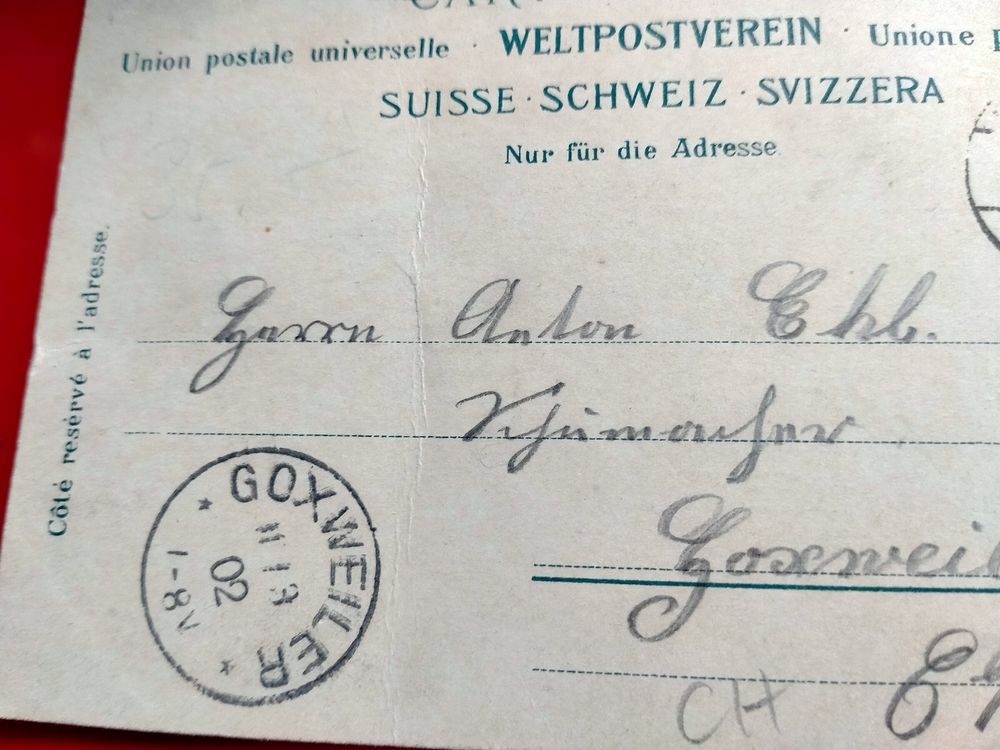 Union postale universelle · WELTPOSTVEREIN · Unione
SUISSE · SCHWEIZ · SVIZZERA
Nur für die Adresse.
Côté resérvé à l'adresse.
Herrn Anton
Schumacher
Goxweil
GOXWEILER
02
CH